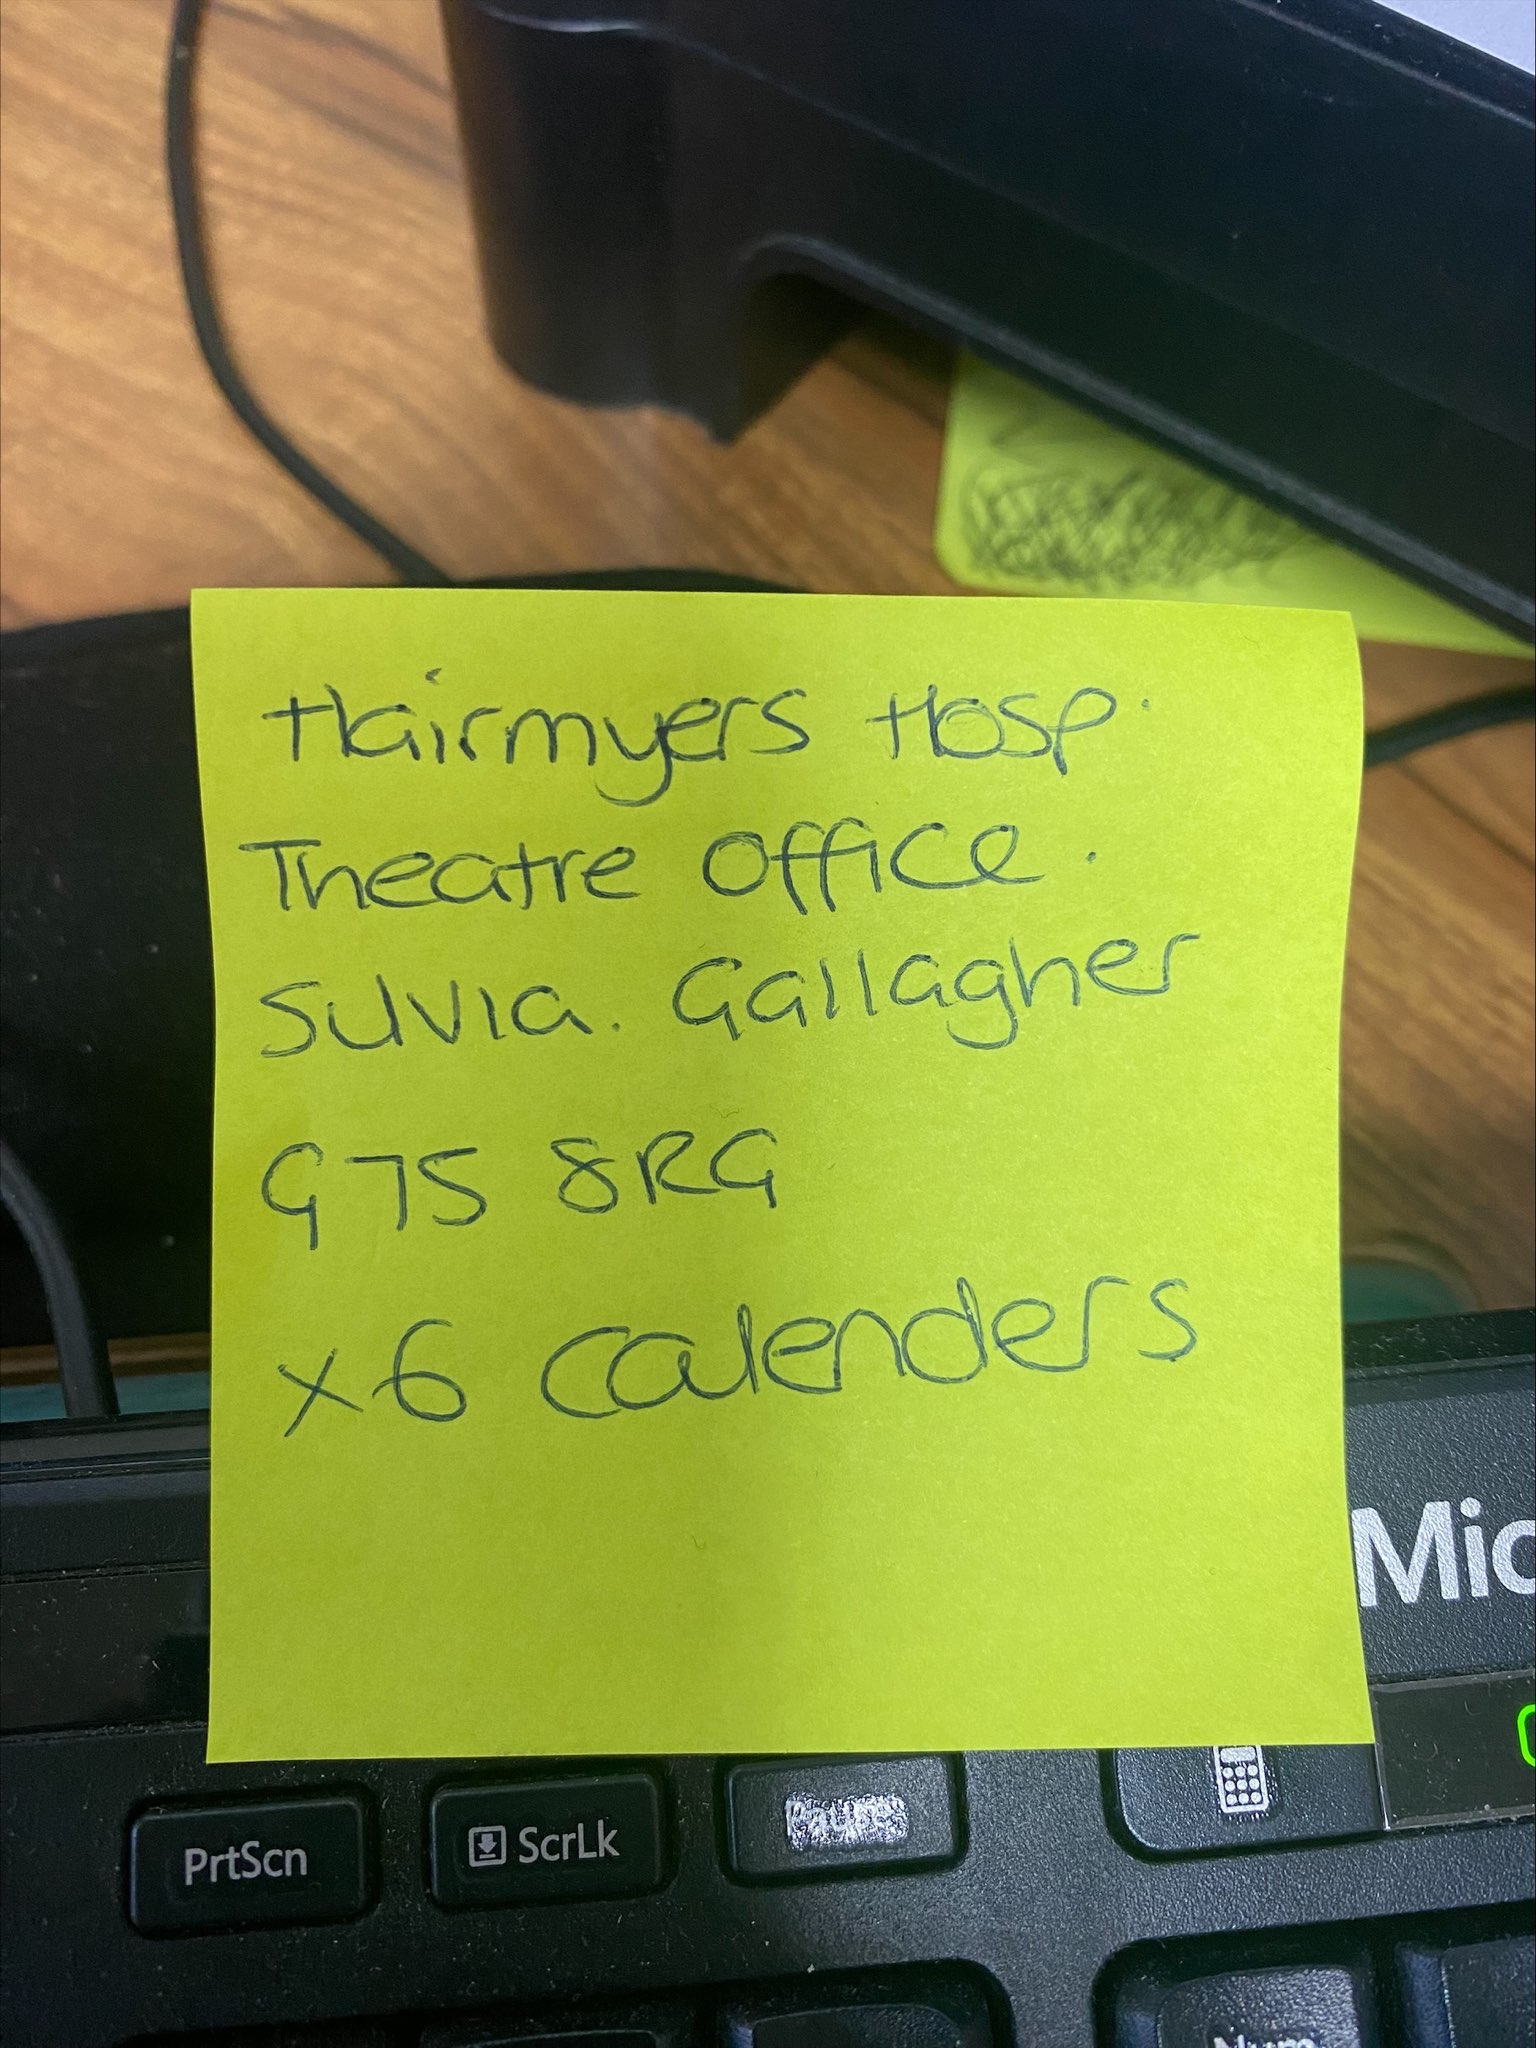 Hairmyers Hosp.
Theatre Office.
Sylvia. Gallagher
G75 8RG
x6 Calenders
Mic
PrtScn
ScrLk
Pause
Num